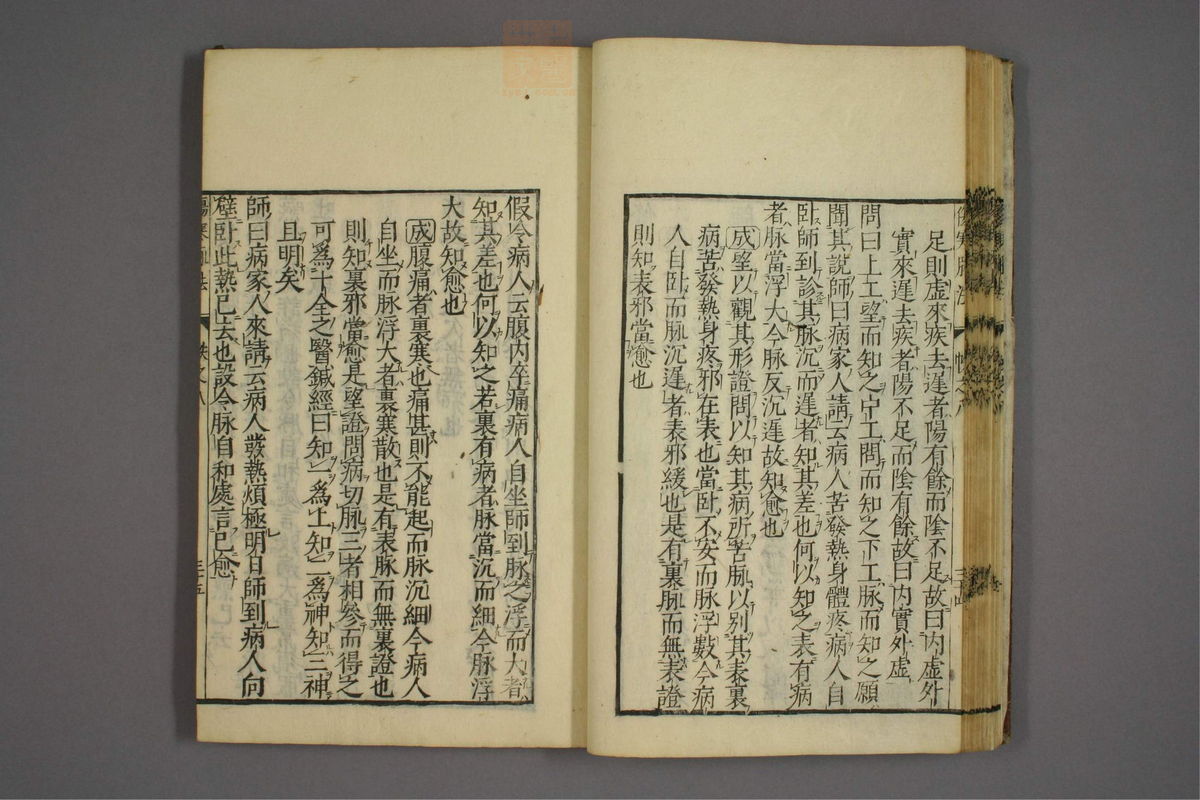 足則虛來疾去遲者陽有餘而陰不足故曰內虛外
實來遲去疾者陽不足而陰有餘故曰內實外虛
問曰上工望而知之中工問而知之下工脉而知之願
聞其說師曰病家人請云病人苦發熱身體疼病人自
臥師到診其脉沉而遲者知其差也何以知之表有病
者脉當浮大今脉反沉遲故知愈也
成望以觀其形證問以知其病所苦脉以別其表裏
病苦發熱身疼邪在表也當臥不安而脉浮數今病
人自臥而脉沉遲者表邪緩也是有裏脉而無表證
則知表邪當愈也
假令病人云腹內卒痛病人自坐師到脉之浮而大者
知其差也何以知之若裏有病者脉當沉而細今脉浮
大故知愈也
成腹痛者裏寒也痛甚則不能起而脉沉細今病人
自坐而脉浮大者裏寒散也是有表脉而無裏證也
則知裏邪當愈是望證問病切脉三者相參而得之
可爲十全之醫鍼經曰知一爲上知二爲神知三神
且明矣
師曰病家人來請云病人發熱煩極明日師到病人向
壁臥此熱已去也設令脉自和處言已愈
三十五